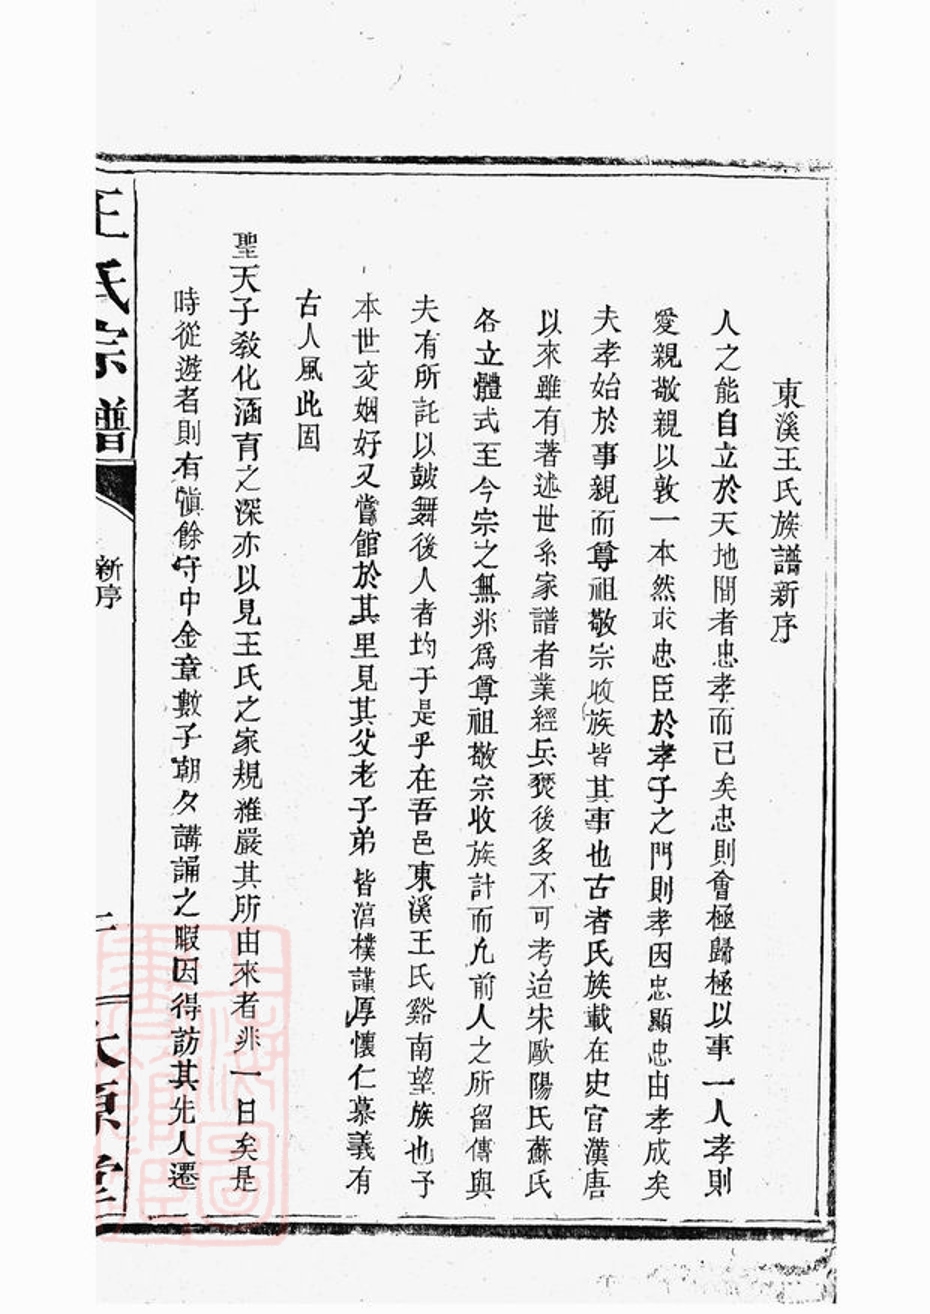 東溪王氏族譜新序
人之能自立於天地間者忠孝而已矣忠則會極歸極以事一人孝則
愛親敬親以敦一本然求忠臣於孝子之門則孝因忠顯忠由孝成矣
夫孝始於事親而尊祖敬宗收族皆其事也古者氏族載在史官漢唐
以來雖有著述世系家譜者業經兵燹後多不可考迨宋歐陽氏蘇氏
各立體式至今宗之無非爲尊祖敬宗收族計而凡前人之所留傳與
夫有所託以皷舞後人者均于是乎在吾邑東溪王氏谿南望族也予
本世交姻好又嘗館於其里見其父老子弟皆湻樸謹厚懷仁慕義有
古人風此固
聖天子教化涵育之深亦以見王氏之家規雍嚴其所由來者非一日矣是
時從遊者則有愼餘守中金章數子朝夕講誦之暇因得訪其先人遷
王氏宗譜
新序
太原堂